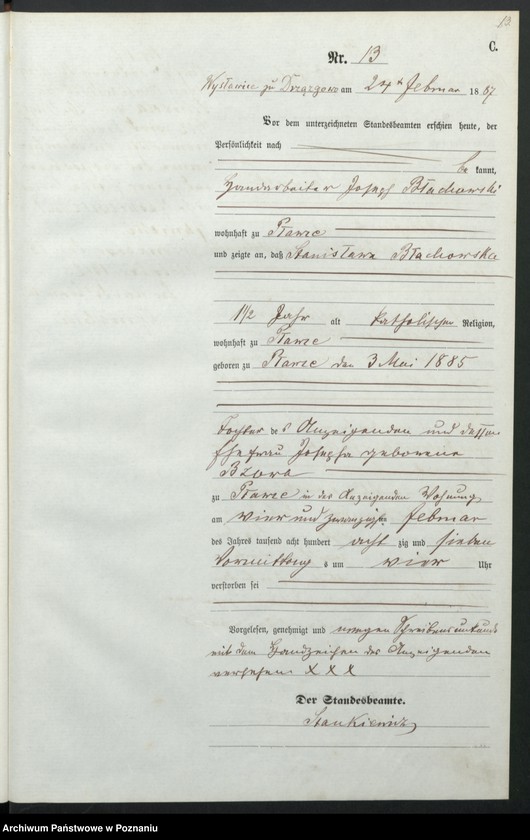 13
C.
Nr. 13
am 24 t Februar 1887
Vor dem unterzeichneten Standesbeamten erschien heute, der
Persönlichkeit nach
be kannt,
Handarbeiter Joseph Błachowski
wohnhaft zu
und zeigte an, daß Stanisława Błachowska
1 1/2 Jahr alt katholischer Religion,
wohnhaft zu
geboren zu den 3 Mai 1885
Tochter des Anzeigenden und dessen
Ehefrau Josepha geborene
zu in des Anzeigenden Wohnung
am vier und zwanzigsten Februar
des Jahres tausend acht hundert acht zig und sieben
Vormittag s um vier Uhr
verstorben sei
Vorgelesen, genehmigt und wegen Schreibensunkunde
mit dem Handzeichen des Anzeigenden
versehen. X X X
Der Standesbeamte.
Stankiewicz
Archiwum Państwowe w Poznaniu